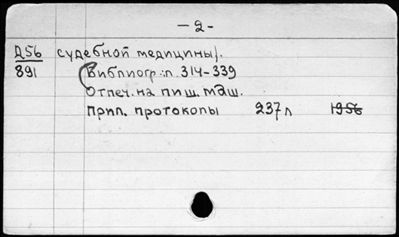 — 2 —
Д56 судебной медицины).
891 Библиогр.: л. 314-339
Отпеч. на пиш. маш.
Прил. протоколы 237 л 1956